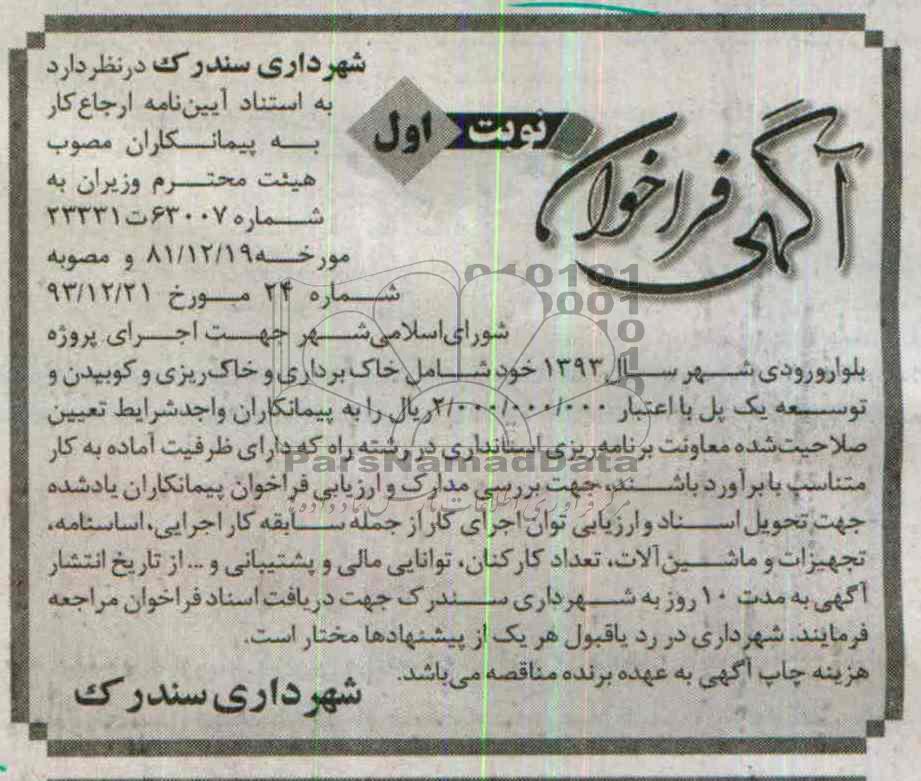 آگهی فراخوان
نوبت اول
شهرداری سندرک درنظر دارد
به استناد آیین‌نامه ارجاع کار
به پیمانکاران مصوب
هیئت محترم وزیران به
شماره ۶۳۰۰۷ت۲۳۳۳۱
مورخه ۸۱/۱۲/۱۹ و مصوبه
شماره ۲۴ مورخ ۹۳/۱۲/۲۱
شورای‌اسلامی‌شهر جهت اجرای پروژه
بلوارورودی شهر سال ۱۳۹۳ خود شامل خاک برداری و خاک‌ریزی و کوبیدن و
توسعه یک پل با اعتبار ۲/۰۰۰/۰۰۰/۰۰۰ریال را به پیمانکاران واجدشرایط تعیین
صلاحیت‌شده معاونت برنامه‌ریزی استانداری در رشته راه که دارای ظرفیت آماده به کار
متناسب با برآورد باشند، جهت بررسی مدارک و ارزیابی فراخوان پیمانکاران یادشده
جهت تحویل اسناد و ارزیابی توان اجرای کار از جمله سابقه کار اجرایی، اساسنامه،
تجهیزات و ماشین‌آلات، تعداد کارکنان، توانایی مالی و پشتیبانی و ... از تاریخ انتشار
آگهی به مدت ۱۰ روز به شهرداری سندرک جهت دریافت اسناد فراخوان مراجعه
فرمایند. شهرداری در رد یاقبول هر یک از پیشنهادها مختار است.
هزینه چاپ آگهی به عهده برنده مناقصه می‌باشد.
شهرداری سندرک
ParsNamadData